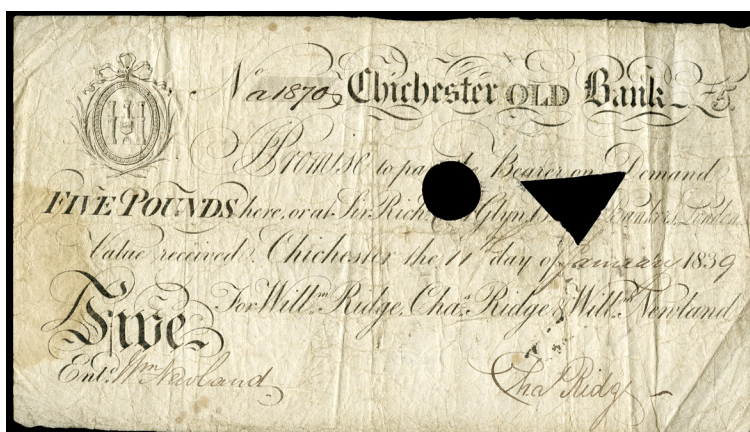 No a1870 Chichester OLD Bank £5.
I Promise to pay the Bearer on Demand
FIVE POUNDS here, or at Sir Rich Glyn Bankers, London
Value received. Chichester the 11 day of January 1839
For Willm. Ridge, Chas. Ridge & Willm. Newland
Five
Entd. Wm Newland
Chas Ridge